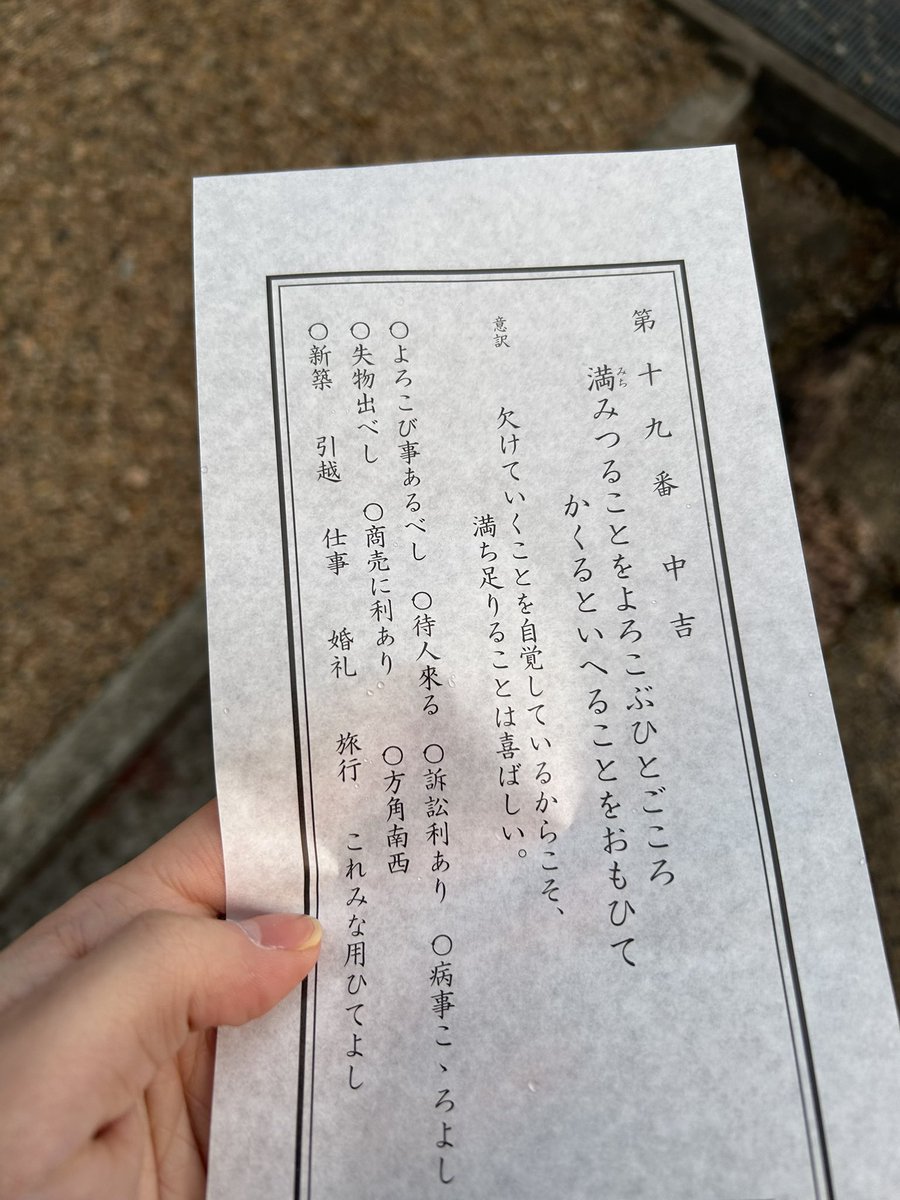 第十九番 中吉
満みつることをよろこぶひとごころ
みち
かくるといへることをおもひて
意訳 欠けていくことを自覚しているからこそ、
満ち足りることは喜ばしい。
〇よろこび事あるべし 〇待人來る 〇訴訟利あり 〇病事こゝろよし
〇失物出べし 〇商売に利あり 〇方角南西
〇新築 引越 仕事 婚礼 旅行 これみな用ひてよし